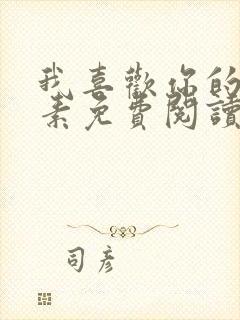 我喜歡你的
素免費閱讀
司彦